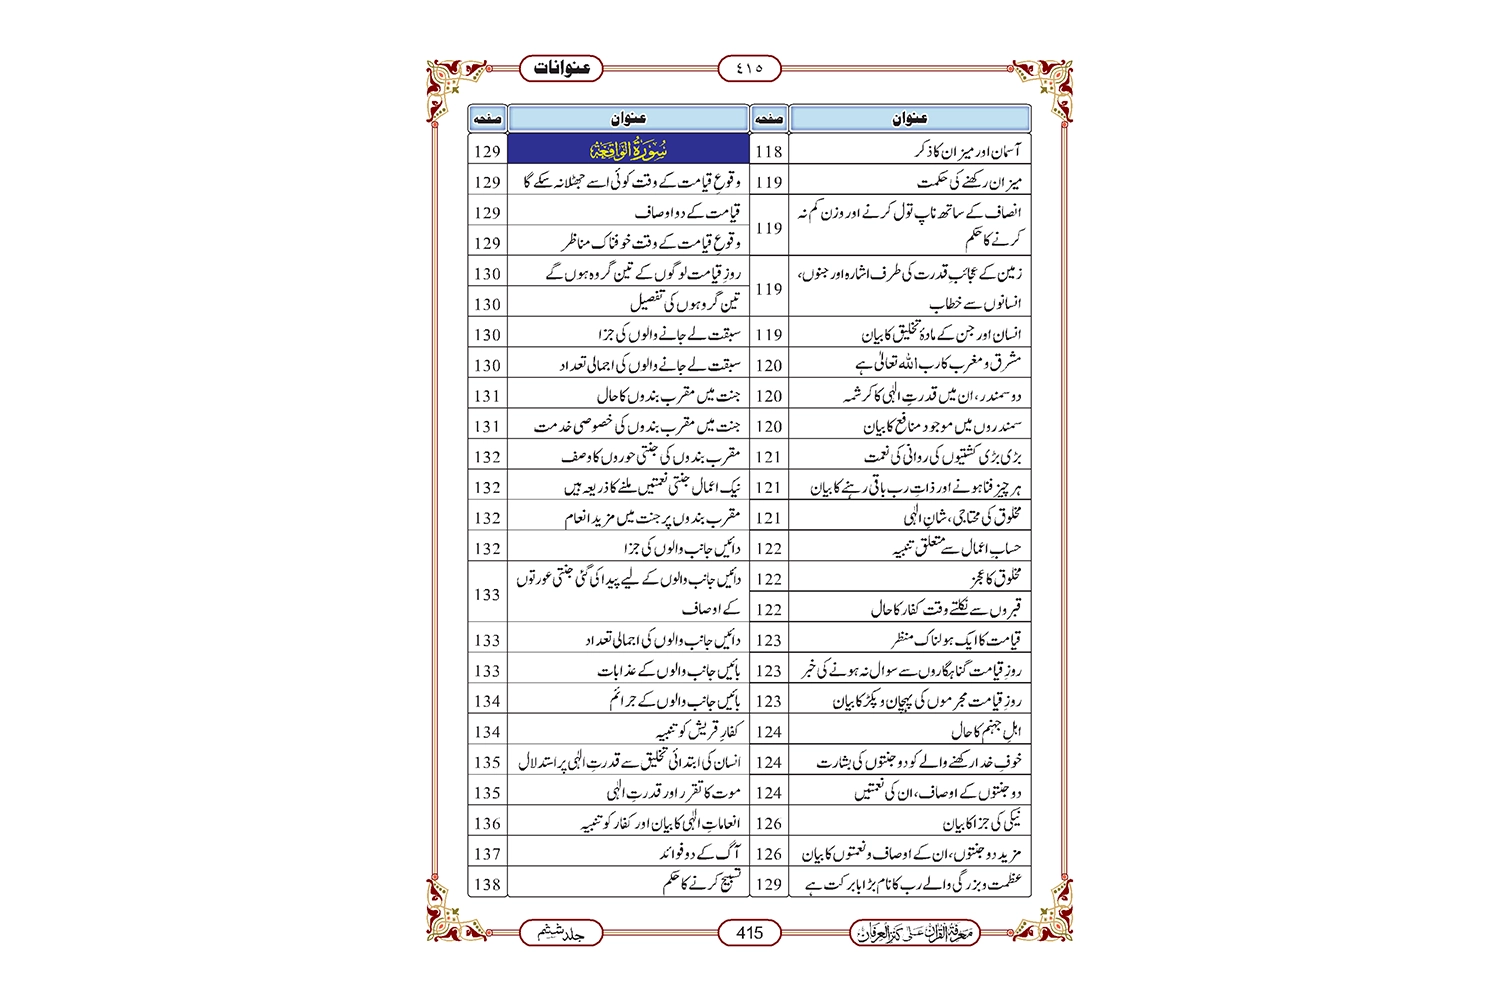 عنوانات
٤١٥
عنوان صفحہ
آسمان اور میزان کا ذکر 118
میزان رکھنے کی حکمت 119
انصاف کے ساتھ ناپ تول کرنے اور وزن کم نہ
کرنے کا حکم 119
زمین کے عجائبِ قدرت کی طرف اشارہ اور جنوں،
انسانوں سے خطاب 119
انسان اور جن کے مادۂ تخلیق کا بیان 119
مشرق و مغرب کا رب اللہ تعالیٰ ہے 120
دو سمندر، ان میں قدرتِ الٰہی کا کرشمہ 120
سمندروں میں موجود منافع کا بیان 120
بڑی بڑی کشتیوں کی روانی کی نعمت 121
ہر چیز فنا ہونے اور ذاتِ رب باقی رہنے کا بیان 121
مخلوق کی محتاجی، شانِ الٰہی 121
حسابِ اعمال سے متعلق تنبیہ 122
مخلوق کا عجز 122
قبروں سے نکلتے وقت کفار کا حال 122
قیامت کا ایک ہولناک منظر 123
روزِ قیامت گناہگاروں سے سوال نہ ہونے کی خبر 123
روزِ قیامت مجرموں کی پہچان و پکڑ کا بیان 123
اہلِ جہنم کا حال 124
خوفِ خدا رکھنے والے کو دو جنتوں کی بشارت 124
دو جنتوں کے اوصاف، ان کی نعمتیں 124
نیکی کی جزا کا بیان 126
مزید دو جنتوں، ان کے اوصاف و نعمتوں کا بیان 126
عظمت و بزرگی والے رب کا نام بڑا بابرکت ہے 129
عنوان صفحہ
سُوْرَةُ الْوَاقِعَة 129
وقوعِ قیامت کے وقت کوئی اسے جھٹلا نہ سکے گا 129
قیامت کے دو اوصاف 129
وقوعِ قیامت کے وقت خوفناک مناظر 129
روزِ قیامت لوگوں کے تین گروہ ہوں گے 130
تین گروہوں کی تفصیل 130
سبقت لے جانے والوں کی جزا 130
سبقت لے جانے والوں کی اجمالی تعداد 130
جنت میں مقرب بندوں کا حال 131
جنت میں مقرب بندوں کی خصوصی خدمت 131
مقرب بندوں کی جنتی حوروں کا وصف 132
نیک اعمال جنتی نعمتیں ملنے کا ذریعہ ہیں 132
مقرب بندوں پر جنت میں مزید انعام 132
دائیں جانب والوں کی جزا 132
دائیں جانب والوں کے لیے پیدا کی گئی جنتی عورتوں
کے اوصاف 133
دائیں جانب والوں کی اجمالی تعداد 133
بائیں جانب والوں کے عذابات 133
بائیں جانب والوں کے جرائم 134
کفارِ قریش کو تنبیہ 134
انسان کی ابتدائی تخلیق سے قدرتِ الٰہی پر استدلال 135
موت کا تقرر اور قدرتِ الٰہی 135
انعاماتِ الٰہی کا بیان اور کفار کو تنبیہ 136
آگ کے دو فوائد 137
تسبیح کرنے کا حکم 138
معرفۃ القرآن علی کنز العرفان
415
جلد ششم